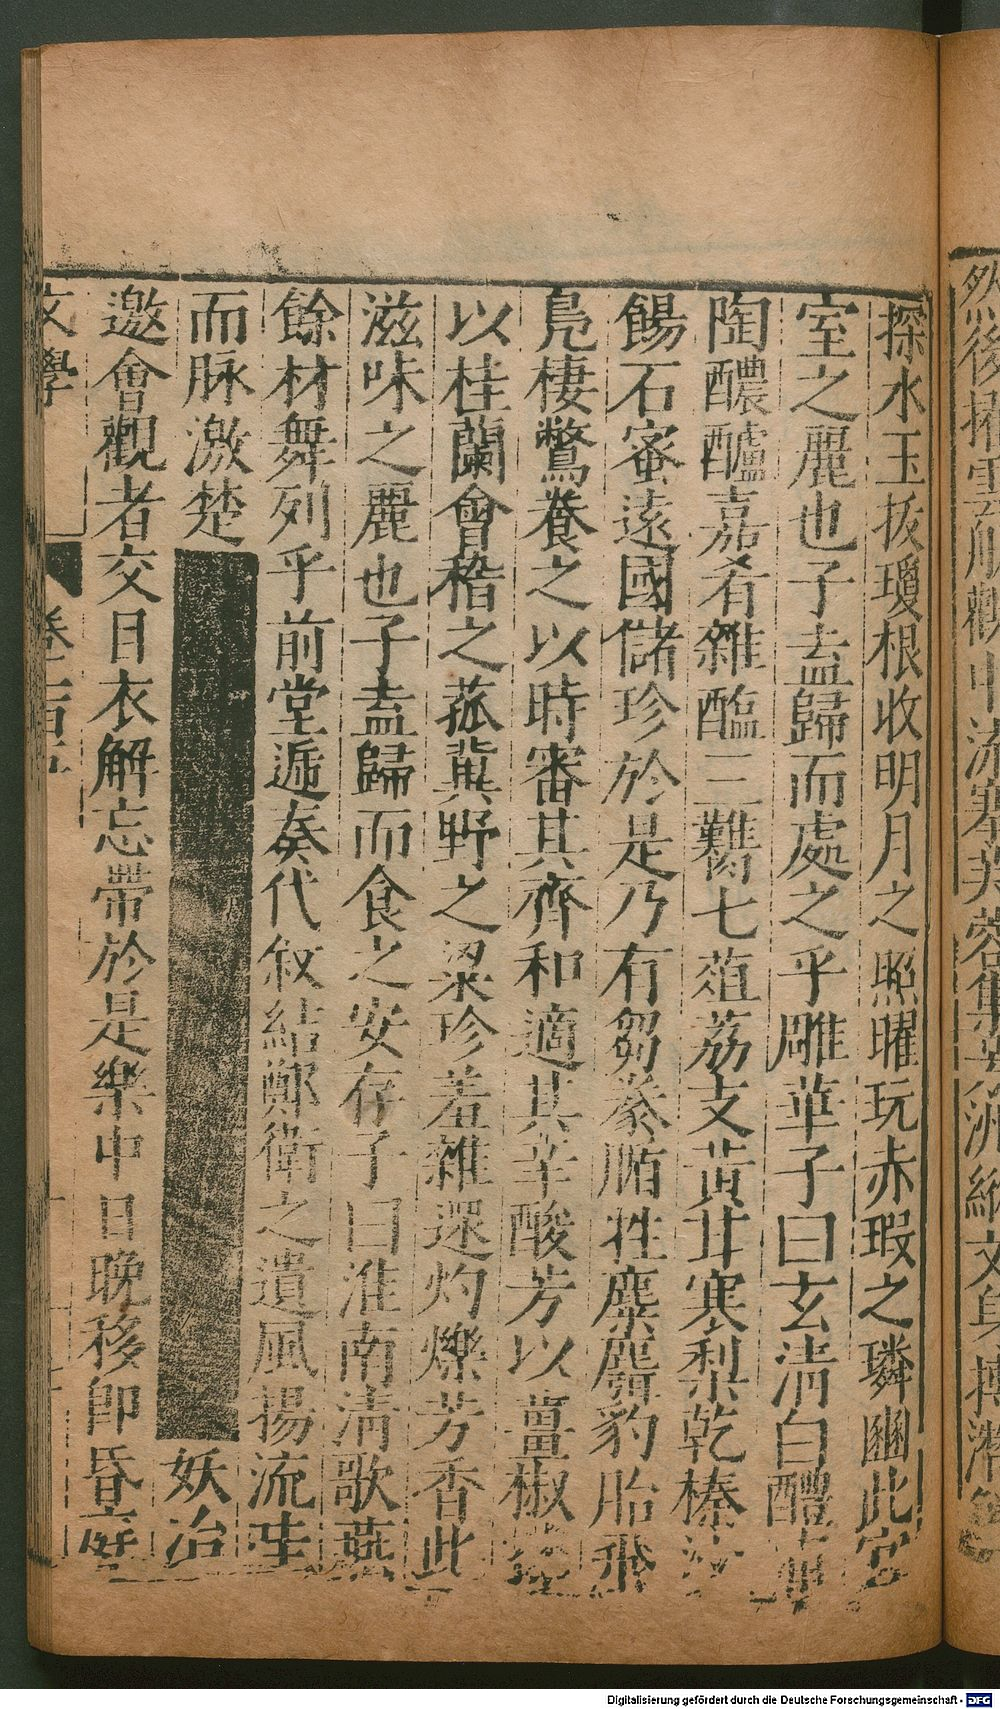 探水玉拔瓊根收明月之照曜玩赤瑕之璘豳此宮
室之麗也子盍歸而處之乎雕華子曰玄清白醴
陶醲醽嘉肴雜醢三臡七菹荔支黃甘寒梨乾榛
餳石蜜遠國儲珍於是乃有芻豢腯牲麋麛豹胎飛
鳧棲鷩養之以時審其齊和適其辛酸芳以薑椒
以桂蘭會稽之菰冀野之梁珍羞雜遝灼爍芳香此
滋味之麗也子盍歸而食之安存子曰淮南清歌燕
餘材舞列乎前堂遞奏代叙結鄭衛之遺風揚流
而脉激楚 妖冶
邀會觀者交目衣解忘帶於是樂中日晚移卽昏庭
文學
然後
中流搴芙蓉集
文身摶潛
Digitalisierung gefördert durch die Deutsche Forschungsgemeinschaft - DFG